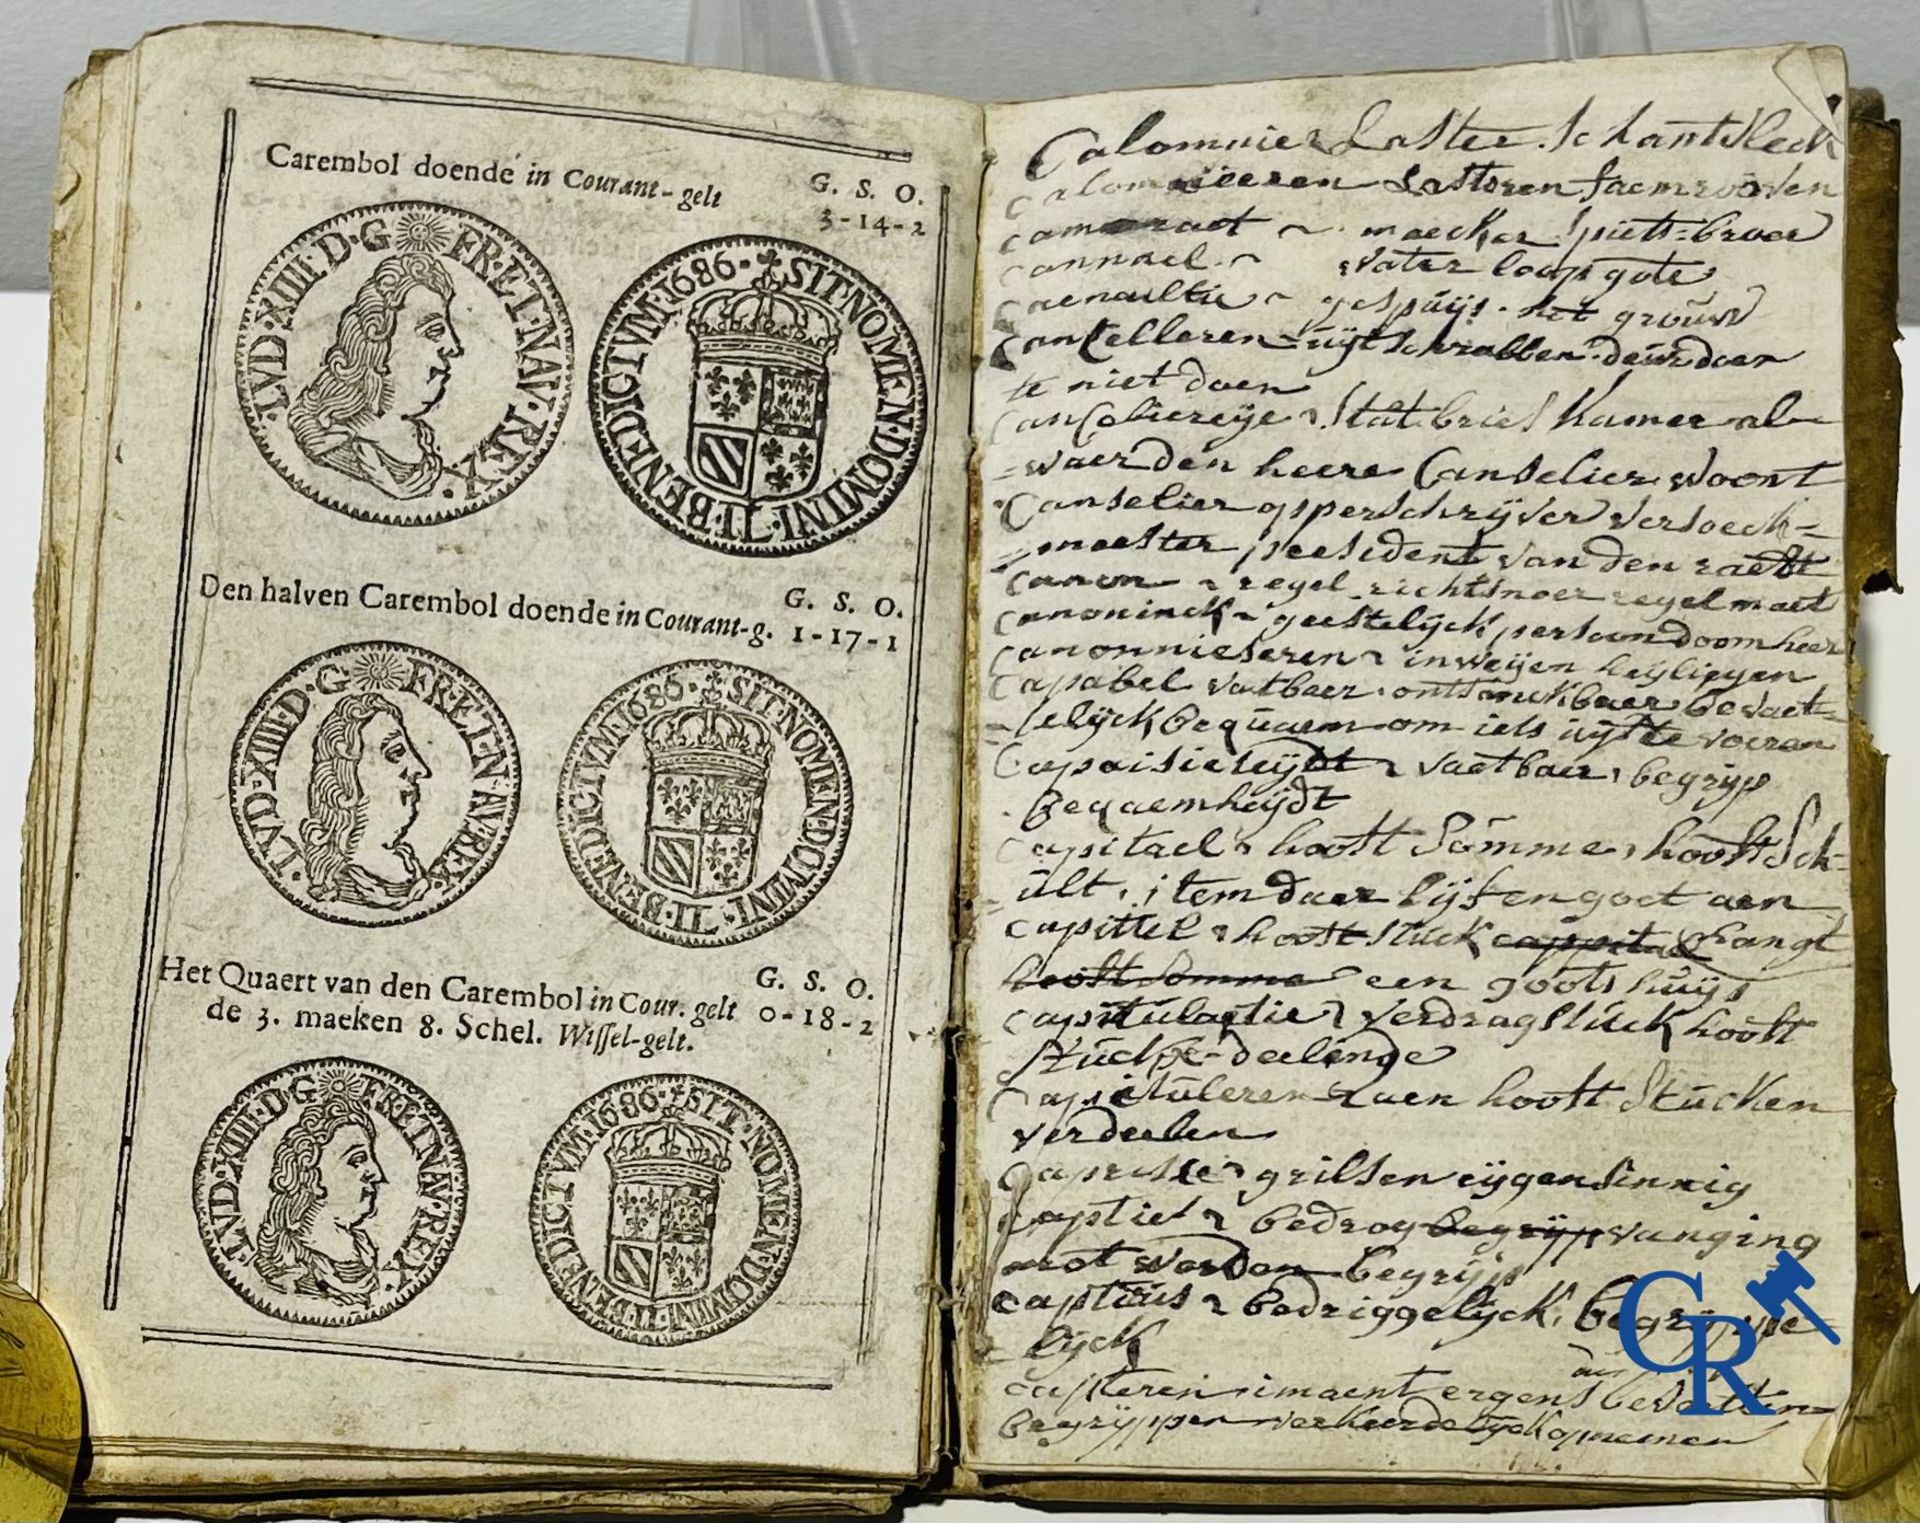 Carembol doende in Courant-gelt G. S. O.
3-14-2
·LVD·XIIII·D·G FR·ET·NAV·REX·
1686· SIT·NOMEN·DOMINI·II·BENEDICTVM·
Den halven Carembol doende in Courant-g. G. S. O.
1-17-1
·LVD·XIIII·D·G FR·ET·NAV·REX·
1686· SIT·NOMEN·DOMINI·II·BENEDICTVM·
Het Quaert van den Carembol in Cour. gelt G. S. O.
0-18-2
de 3. maeken 8. Schel. Wissel-gelt.
·LVD·XIIII·D·G FR·ET·NAV·REX·
1686· SIT·NOMEN·DOMINI·II·BENEDICTVM·
Calomnie Laster schantvleck
Lasteren faem rooven
maecker
cannael water loop gote
gespuijs het
Cancelleren uijtschrabben deurdoen
te niet doen
kamer al-
-waer den heere Canselier woont
Canselier opperschrijver versoeck-
-meester president van den raedt
Canon regel richtsnoer regel maet
canoninck geestelijck persoon doomheer
inweijen
Capabel vatbaer ontfanckbaer bevaet-
-lelijck bequaem om iets uijt te voeren
vaetbaer begrijp
bequaemheijdt
Capitael hooft somme hooft sch-
ult item daer lijf en goet aen
Capittel hooft stuck cappitael hangt
hooft somme een goots huijs
capitulaetie verdragstuck hooft
stucke deelinge
Capituleren aen hooft stucken
verdeelen
grilsen eijgensinnig
bedrog begrijp vanging
worden begrijp
captieus bedriggelijck begrijpe-
-lijck
capteren imaent ergens
begrijppen verkeerdelijck opnemen
CR